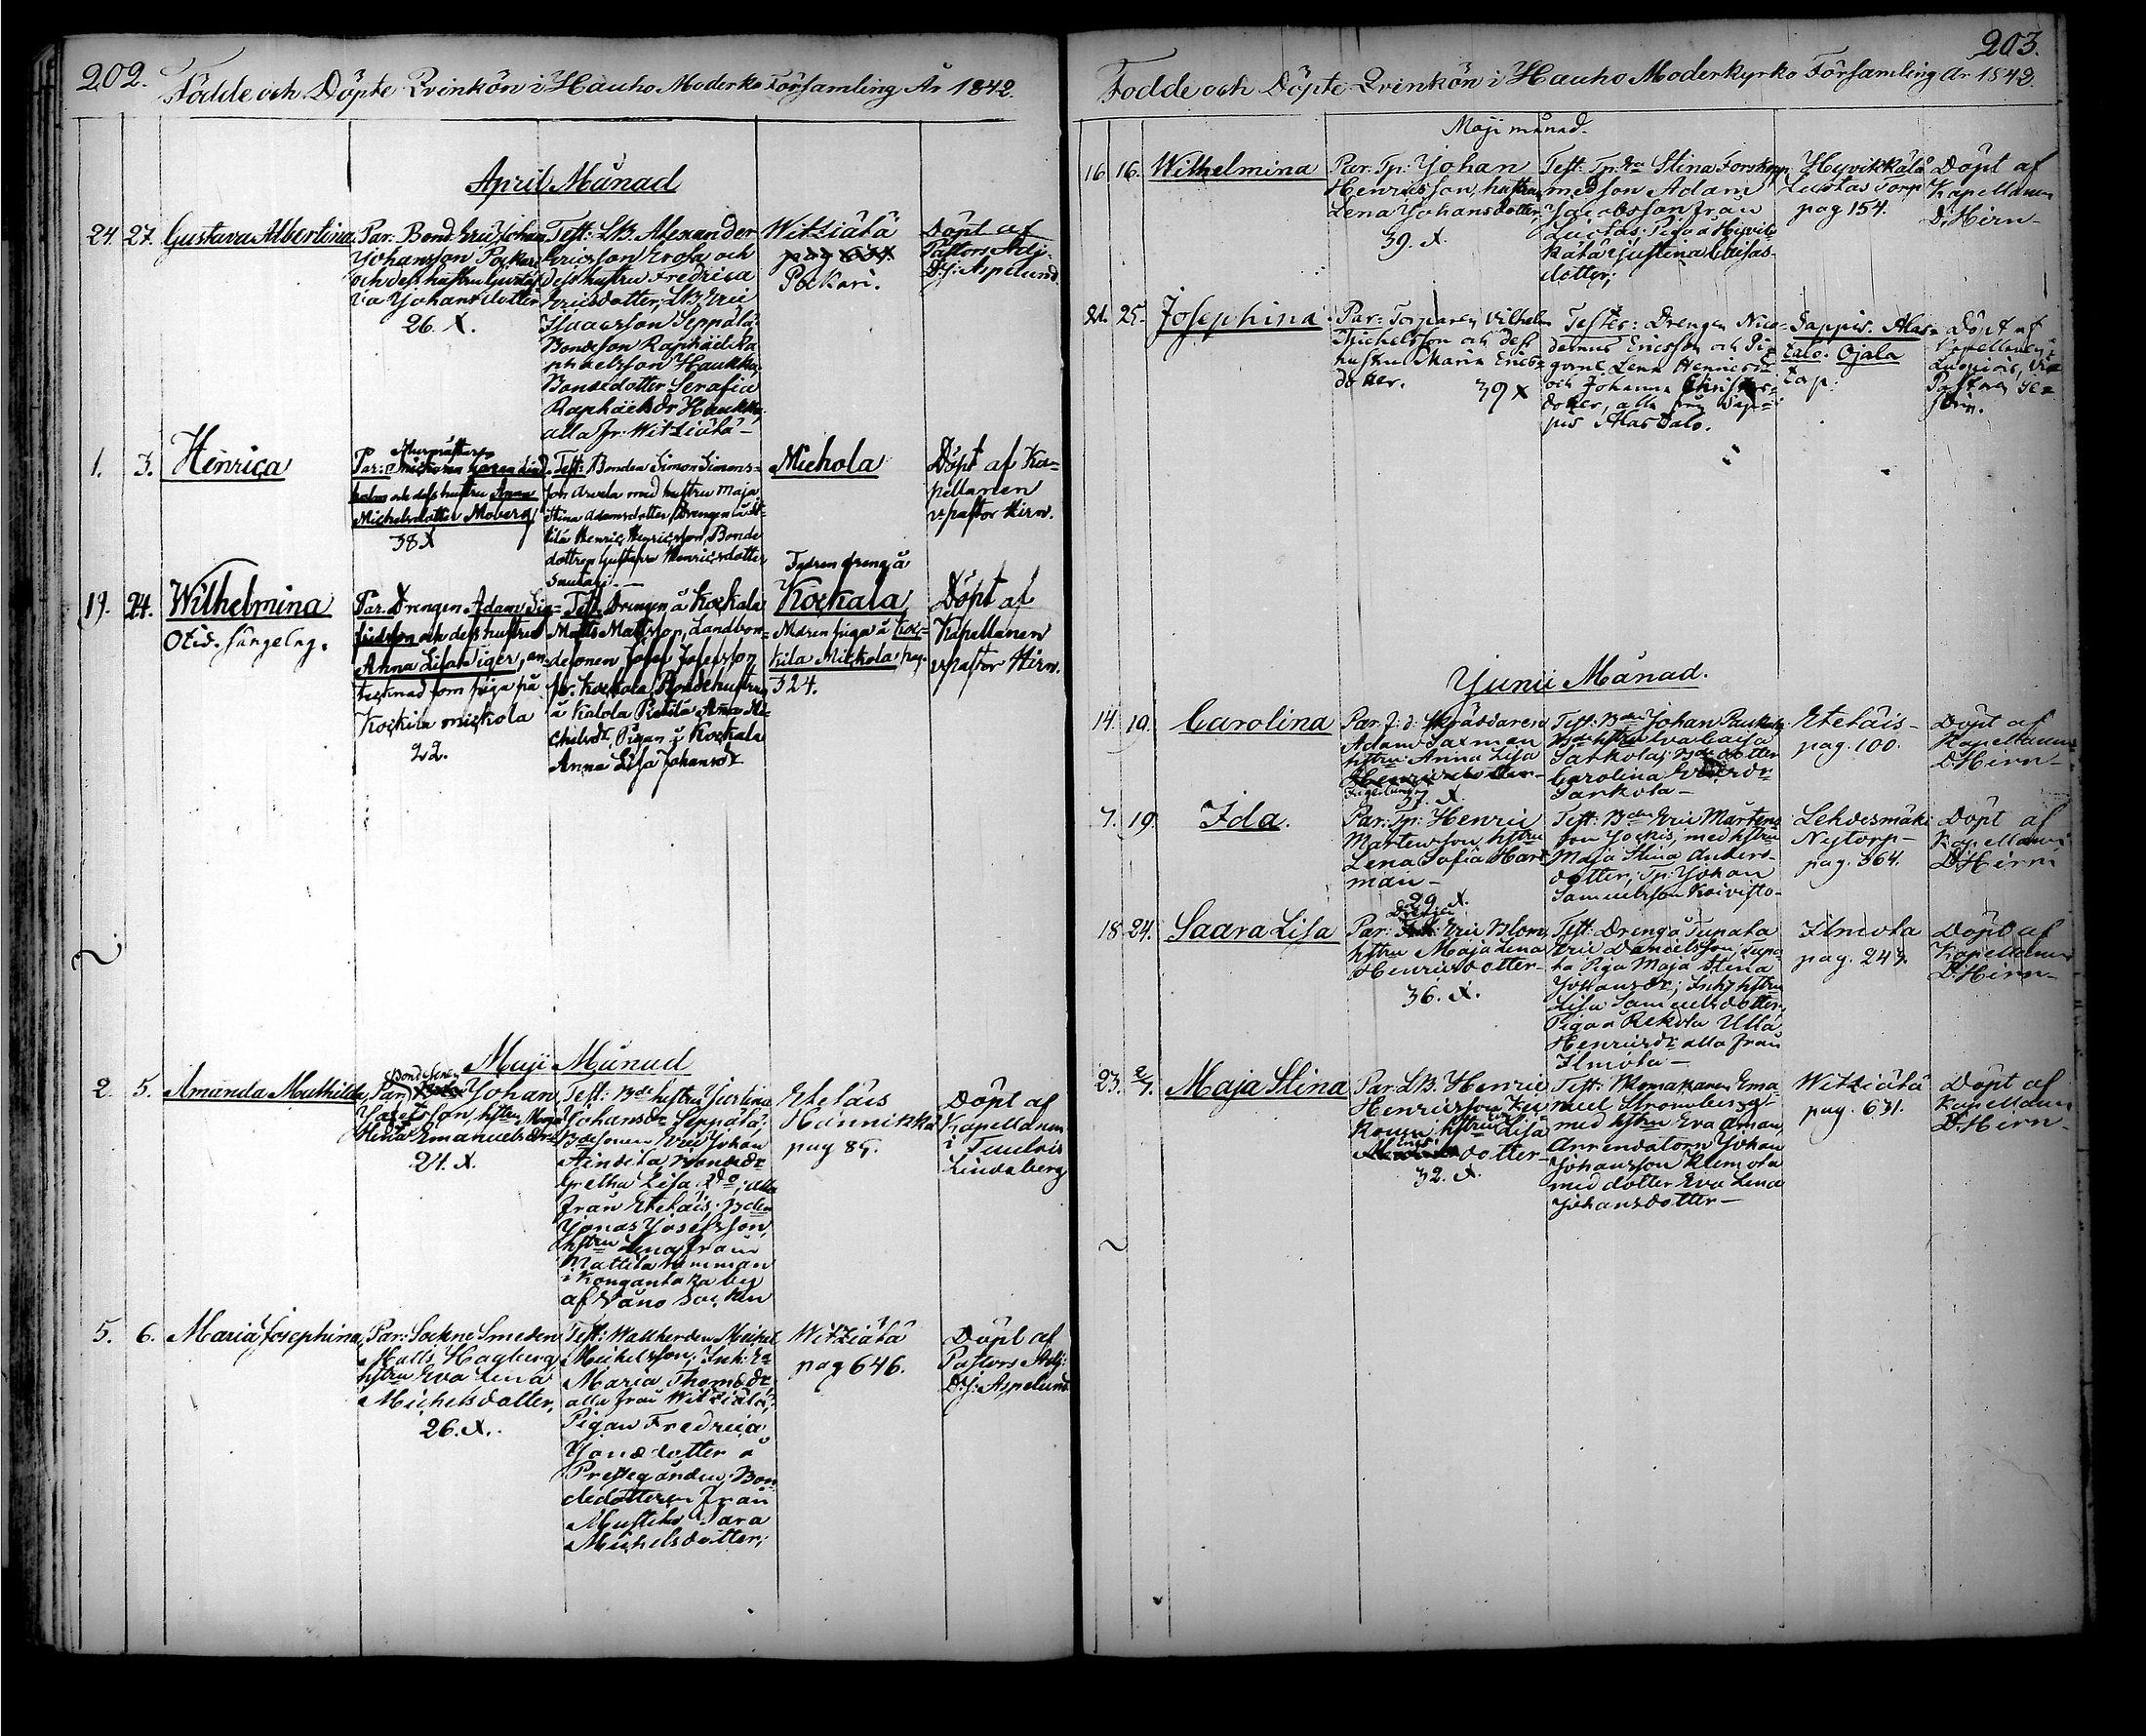 202.
Födde och Döpte Qvinkön i Hauho Moderk: Församling År 1842.
April Månad
24. 27. Gustava Albertina
Par: Bond: Eric Johan
Johansson Pockari
och dess hustru Gusta
va Johansdotter
26. X.
Test: LB. Alexander
Ericsson Erola och
dess hustru Fredrica
Ericsdotter, LB. Eric
Isaacsson Seppälä
Bondeson Raphael Ra
phaelsson Haukka,
Bondedotter Serafia
Raphaelsdr Haukka
alla fr: Witziälä
Witziälä
Pockari.
Döpt af
Pastors Adj:
D: J: Aspelund
1. 3. Henrica
Par:
och dess hustru Anna
Michelsdotter Moberg
38 X
Test: Bonden Simon Simons-
son Arvela med hustru Maja
Stina Adamsdotter, Drengen å
Henric Henricsson, Bonde
dottren Gustava Henricsdotter
Michola
Döpt af Ka-
pellanen
v:pastor Hirn.
19. 24. Wilhelmina
Par. Drengen Adam Sig-
fridsson och dess hustru
Anna Lisa Tiger, an-
tecknad som piga på
Kockila mickola
22.
Test. Drengen å Kockala
Matts Mattsson, Landbon-
desonen Josef Josefsson
fr. Kockala, Bondehustrun
å Kalola Anna Mi-
chelsdr, Pigan å Kockala
Anna Lisa Johansdr
Fadren dreng å
Kockala
Modren piga å Koc-
kila Mickola pag.
324.
Döpt af
Kapellanen
v:pastor Hirn.
Maji Månad
2. 5. Amanda Mathilda
Bondesonen
Par: Johan
Josefsson, hstru Maja
Stina Emanuelsdr
21. X.
Test: Bde hustru Justina
Johansdr Seppälä;
Bdesonen Eric Johan
Bondedr
Gretha Lisa do; alla
från Eteläis; Bden
Jonas Josefsson,
hstru Lena från
Mattila
i by
af Socken
Eteläis
Hannikka
pag 85.
Döpt af
Kapellanen
i Tuulois
Lindeberg
5. 6. Maria Josephina
Par: Sockne Smeden
Matts Hagberg
hstru Eva Lena
Michelsdotter,
26. X.
Test: Michel
Michelsson; Inh:
Maria Thomædr
alla från Witziälä;
Pigan Fredrica
Jonædotter å
Prestegården; Bon
dedotteren från
Mustila Sara
Michelsdotter;
Witziälä
pag 646.
Döpt af
Pastors Adj:
D: J: Aspelund
203.
Födde och Döpte Qvinkön i Hauho Moderkyrko Församling År 1842.
Maji månad.
16 16. Wilhelmina
Par. Tp: Johan
Henricsson, hustru
Lena Johansdotter,
39. X.
Test: Tp: Stina
med son Adam
Jacobsson från
Luotas; Piga å Hyvik
kälä Justina Caisas
dotter;
Hyvikkälä
Luotas Torp
pag 154.
Döpt af
Kapellanen
D: Hirn
21. 25. Josephina
Par: Torparen Vilhelm
Michelsson och dess
hustru Maria Erics-
dotter. 39 X
Testes: Drengen Nico-
demus Ericsson och Pi-
gorne Lena Henricsdr
och Johanna Christers-
dotter, alla från Sap-
pis Alas Talo.
Sappis. Alas-
talo. Ojala
torp.
Döpt af
Kapellanen i
Lampis, Vice
Pastoren
Junii Månad.
14. 19. Carolina
Par: f: d: Skräddaren
Adam Saxman
hstru Anna Lisa
37. X.
Test: Bden Johan
Bde hstru Eva Caisa
Sarkola; Bde dotter
Carolina
Sarkola
Eteläis
pag. 100.
Döpt af
Kapellanen
D: Hirn
7. 19. Ida.
Par: Tp: Henric
Mårtensson, hstru
Lena Sofia Hart
man
29. X.
Test: Bden Eric Mårtens
son Jockis, med hstru
Maja Stina Anders-
dotter; Tp: Johan
Samuelsson Koivisto
Lehdesmäki
Nytorp
pag. 364.
Döpt af
Kapellanen
D: Hirn
18. 24. Saara Lisa
Drengen
Par: Eric Blom,
hstru Maja Lena
Henricsdotter
36. X.
Test: Dreng å Tupala
Eric Danielsson, Tupa-
la Piga Maja Stina
Johansdr; Inh: hstru
Lisa Samuelsdotter,
Piga å Rekola Ulla
Henricsdr alla från
Ilmola
Ilmola
pag. 247.
Döpt af
Kapellanen
D: Hirn
23. 2/7. Maja Stina
Par: LB. Henric
Henricsson
hstru Lisa
dotter
32. X.
Test: Ema
nuel Strömberg
med hstru Eva
Arrendatorn Johan
Johansson Klemola
med dotter Eva Lena
Johansdotter
Witziälä
pag. 631.
Döpt af
Kapellanen
D: Hirn